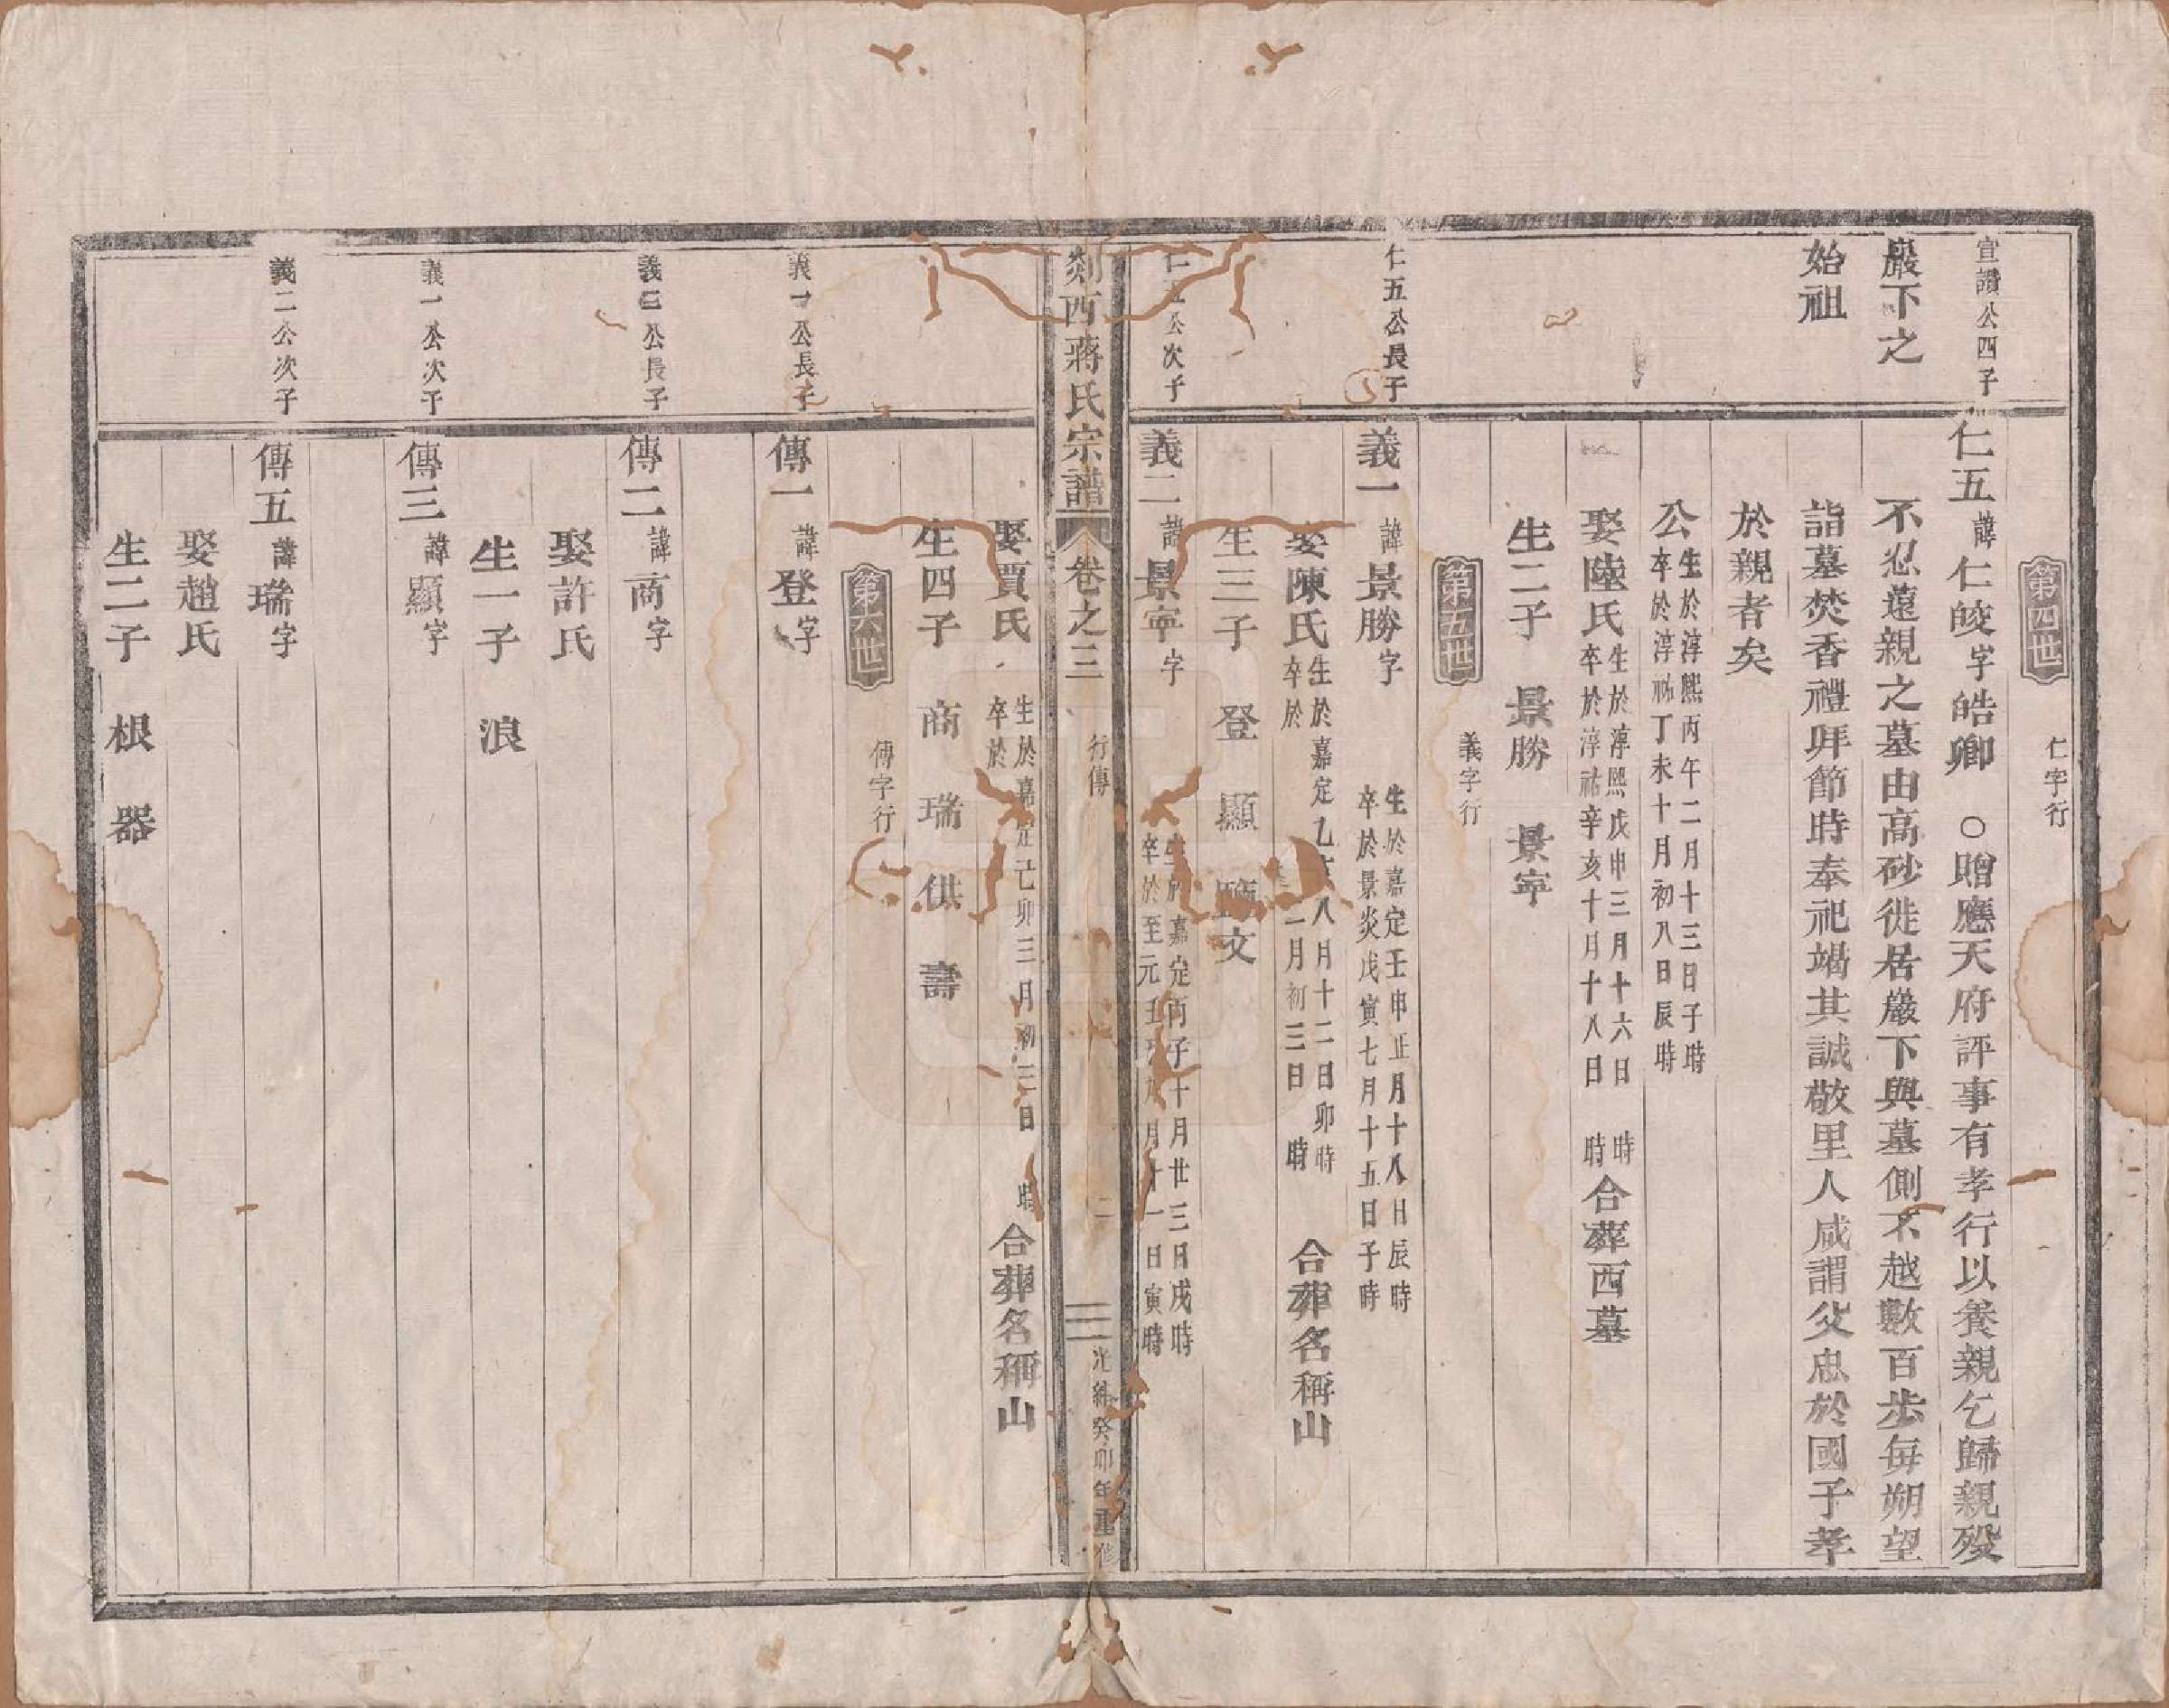 第四世
仁字行
宣讚公四子
仁五 諱 仁皎 字 皓卿 ○贈應天府評事有孝行以養親乞歸親歿
巖下之
不忍遠親之墓由高砂徙居巖下與墓側不越數百步每朔望
始祖
詣墓焚香禮拜節時奉祀竭其誠敬里人咸謂父忠於國子孝
於親者矣
公 生於淳熙丙午二月十三日子時
卒於淳祐丁未十月初八日辰時
娶陸氏 生於淳熙戊申三月十六日 時
卒於淳祐辛亥十月十八日 時 合葬西墓
生二子 景勝 景寧
第五世
義字行
仁五公長子
義一 諱 景勝 字 生於嘉定壬申正月十八日辰時
卒於景炎戊寅七月十五日子時
娶陳氏 生於嘉定乙亥八月十二日卯時
卒於 二月初三日 時 合葬名稱山
生三子 登 顯 文
仁五公次子
義二 諱 景寧 字 生於嘉定丙子十月廿三日戌時
卒於至元 月十一日寅時
剡西蔣氏宗譜
卷之三
行傳
二
光緒癸卯年重修
娶賈氏 生於嘉定己卯三月初三日 時
卒於 合葬名稱山
生四子 商 瑞 供 壽
第六世
傳字行
義一公長子
傳一 諱 登 字
義二公長子
傳二 諱 商 字
娶許氏
生一子 浪
義一公次子
傳三 諱 顯 字
義二公次子
傳五 諱 瑞 字
娶趙氏
生二子 根 器